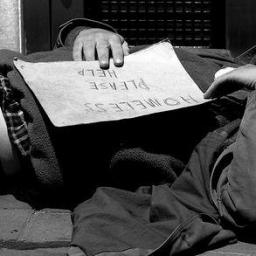 HOMELESS
PLEASE
HELP